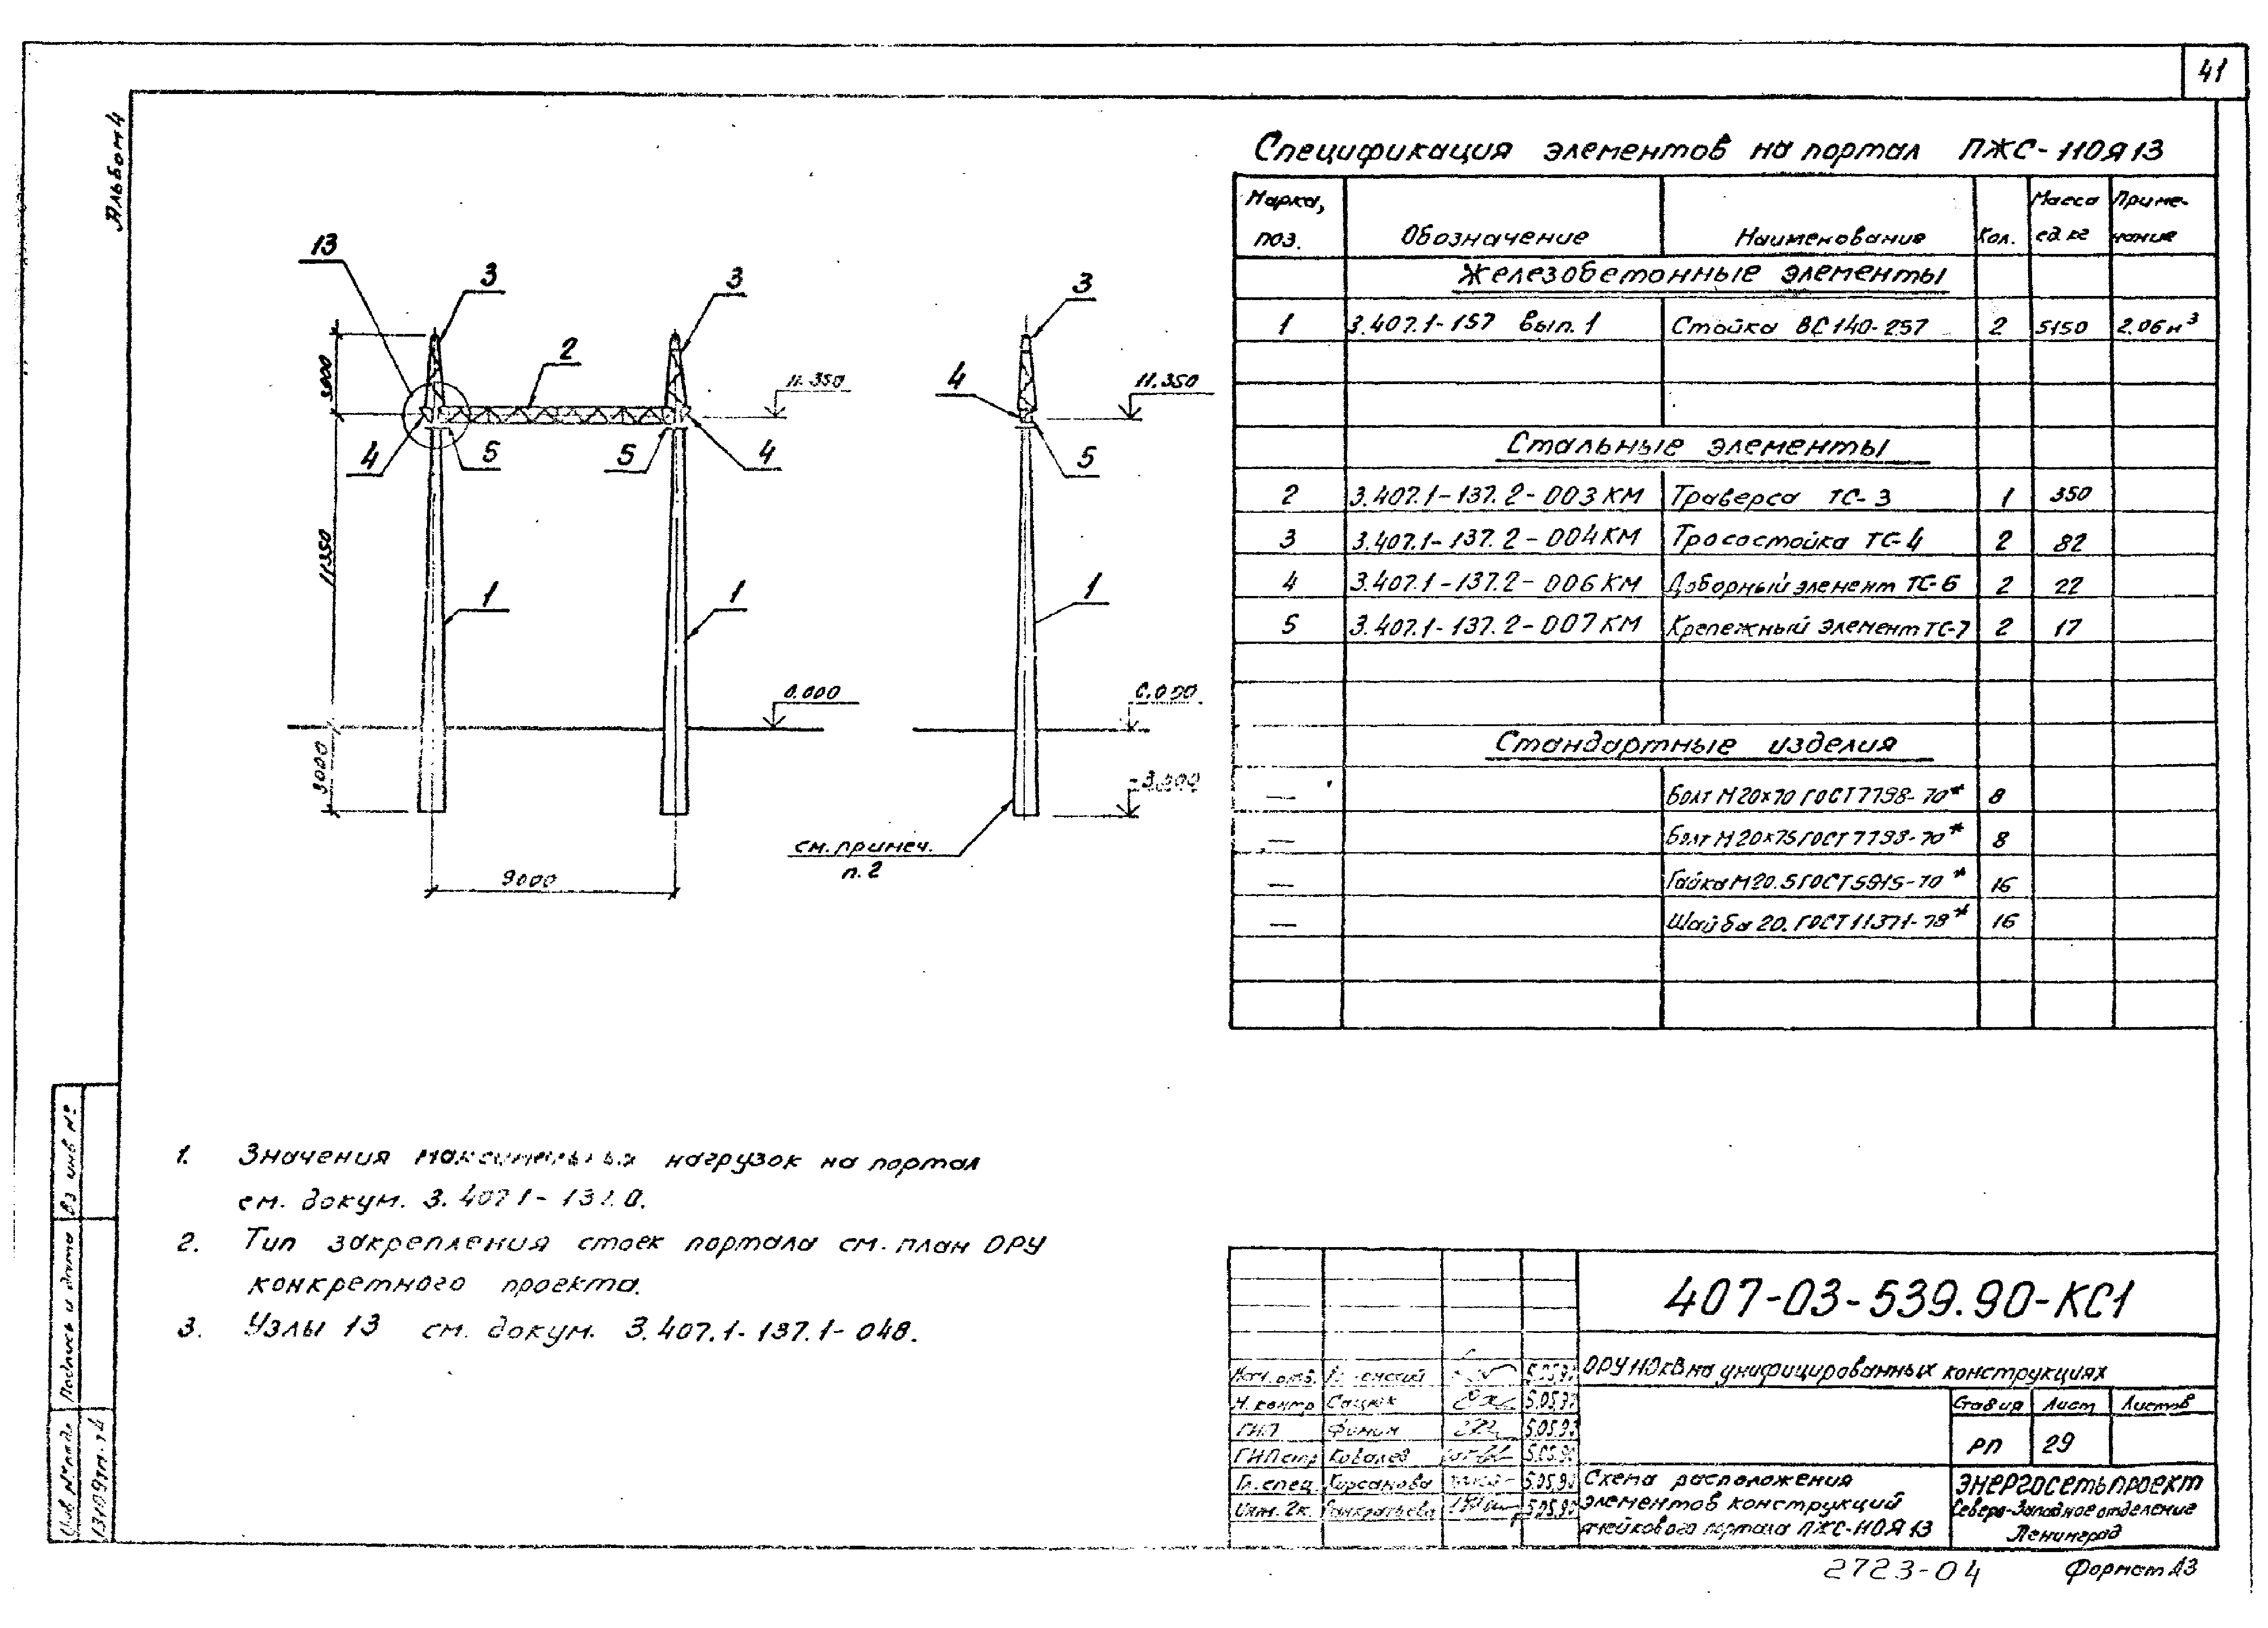 41
Альбом 4
13
3
3
2
4
5
5
4
3000
11350
3000
1
1
11.350
0.000
9000
3
4
5
1
11.350
0.000
-3.000
см. примеч.
п. 2
Спецификация элементов на портал ПЖС-110Я13
Марка, поз. Обозначение Наименование Кол. Масса ед. кг Приме-чание
Железобетонные элементы
1 3.407.1-157 вып. 1 Стойка ВС 140-257 2 5150 2.06м³
Стальные элементы
2 3.407.1-137.2-003КМ Траверса ТС-3 1 350
3 3.407.1-137.2-004КМ Тросостойка ТС-4 2 82
4 3.407.1-137.2-006КМ Доборный элемент ТС-6 2 22
5 3.407.1-137.2-007КМ Крепежный элемент ТС-7 2 17
Стандартные изделия
— Болт М20х70 ГОСТ 7798-70* 8
— Болт М20х75 ГОСТ 7798-70* 8
— Гайка М20.5 ГОСТ 5915-70* 16
— Шайба 20. ГОСТ 11371-78* 16
1. Значения максимальных нагрузок на портал
см. докум. 3.407.1-137.0.
2. Тип закрепления стоек портала см. план ОРУ
конкретного проекта.
3. Узлы 13 см. докум. 3.407.1-137.1-048.
Вз. инв. №
Подпись и дата
Инв. № подл.
407-03-539.90-КС1
ОРУ 110кВ на унифицированных конструкциях
Нач. отд. 5.05.90
Н. контр Сацюк 5.05.90
ГИП Фомин 5.05.90
ГИП стр Ковалев 5.05.90
Гл. спец. Кирсанова 5.05.90
Инж. 2к. Панкратьева 5.05.90
Стадия Лист Листов
РП 29
Схема расположения
элементов конструкций
ячейкового портала ПЖС-110Я13
ЭНЕРГОСЕТЬПРОЕКТ
Северо-Западное отделение
Ленинград
2723-04
Формат А3